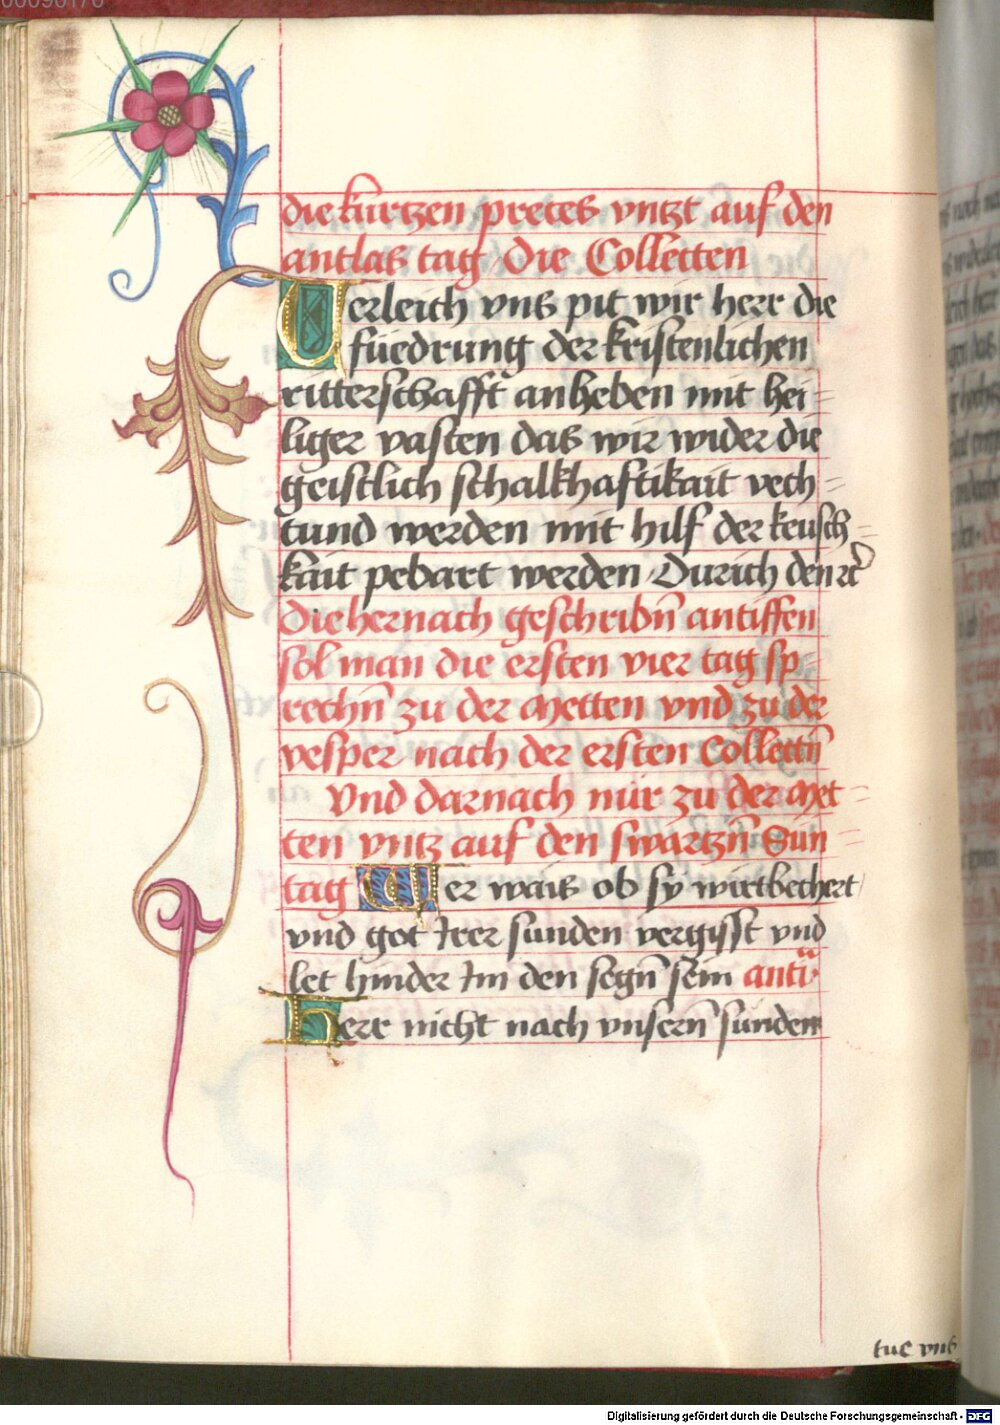 die kurtzen preces vntzt auf den
antlas tag Die Collecten
Verleich vns pit wir herr die
füedrung der kristenlichen
ritterschafft anheben mit hei-
liger vasten das wir wider die
geistlich schalkhaftikait vech-
tund werden mit hilf der keusch-
kait pebart werden Durich den rc
Die hernach geschribn̄ antiffen
sol man die ersten vier tag sp-
rechn̄ zu der metten vnd zu der
vesper nach der ersten Collectn̄
Vnd darnach nür zu der met-
ten vntz auf den swartzn̄ Sun-
tag Wer wais ob sy wirt bechert
vnd got Irer sunden vergisst vnd
let hinder Im den segn̄ sein anti
herr nicht nach vnsern̄ sunden
tue vns
Digitalisierung gefördert durch die Deutsche Forschungsgemeinschaft - DFG